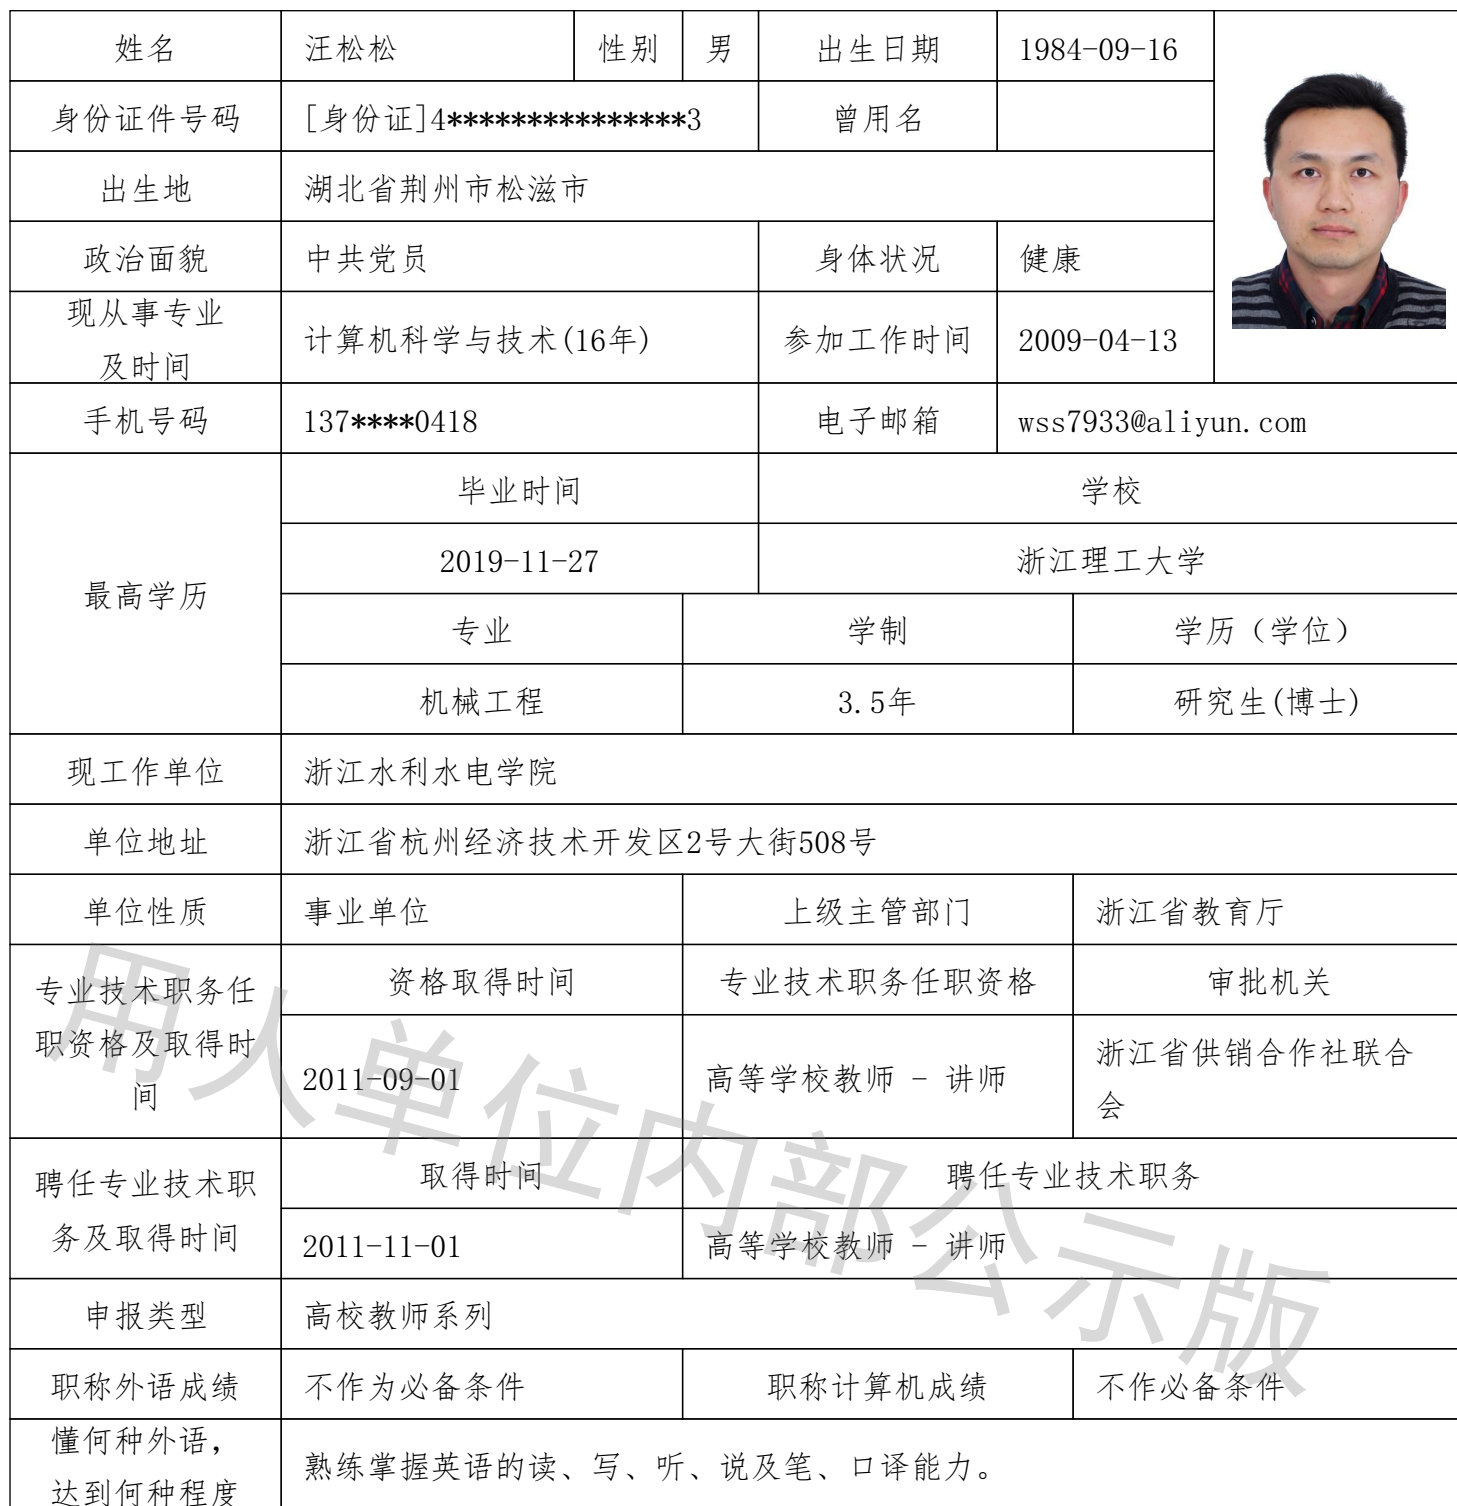 姓名 汪松松 性别 男 出生日期 1984-09-16
身份证件号码 [身份证]4***************3 曾用名
出生地 湖北省荆州市松滋市
政治面貌 中共党员 身体状况 健康
现从事专业
及时间 计算机科学与技术(16年) 参加工作时间 2009-04-13
手机号码 137****0418 电子邮箱 wss7933@aliyun.com
最高学历
毕业时间 学校
2019-11-27 浙江理工大学
专业 学制 学历（学位）
机械工程 3.5年 研究生(博士)
现工作单位 浙江水利水电学院
单位地址 浙江省杭州经济技术开发区2号大街508号
单位性质 事业单位 上级主管部门 浙江省教育厅
专业技术职务任
职资格及取得时
间
资格取得时间 专业技术职务任职资格 审批机关
2011-09-01 高等学校教师 - 讲师 浙江省供销合作社联合
会
聘任专业技术职
务及取得时间
取得时间 聘任专业技术职务
2011-11-01 高等学校教师 - 讲师
申报类型 高校教师系列
职称外语成绩 不作为必备条件 职称计算机成绩 不作必备条件
懂何种外语，
达到何种程度 熟练掌握英语的读、写、听、说及笔、口译能力。
用人单位内部公示版